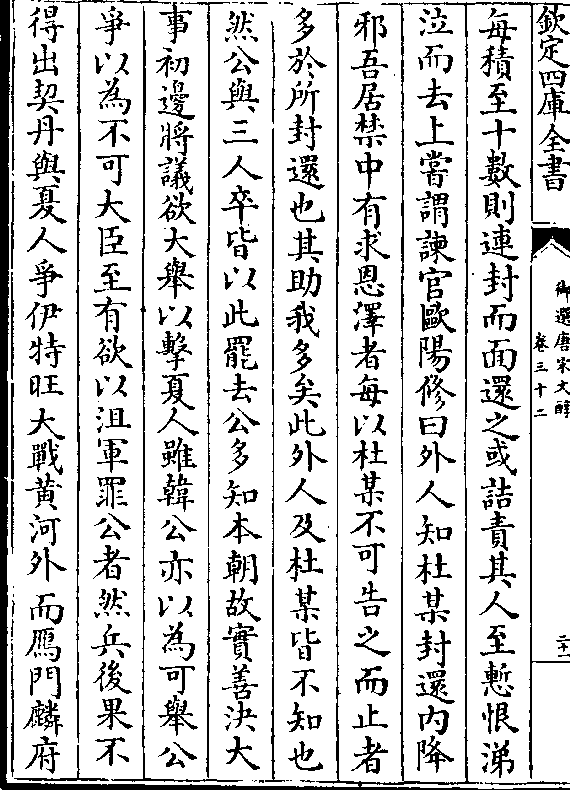 欽定四庫全書
御選唐宋文醇
卷三十二
二十一
每積至十數則連封而面還之或詰責其人至慙恨涕
泣而去上嘗謂諫官歐陽修曰外人知杜某封還内降
邪吾居禁中有求恩澤者每以杜某不可告之而止者
多於所封還也其助我多矣此外人及杜某皆不知也
然公與三人卒皆以此罷去公多知本朝故實善決大
事初邊將議欲大舉以擊夏人雖韓公亦以為可舉公
爭以為不可大臣至有欲以沮軍罪公者然兵後果不
得出契丹與夏人爭伊特旺大戰黄河外而鴈門麟府